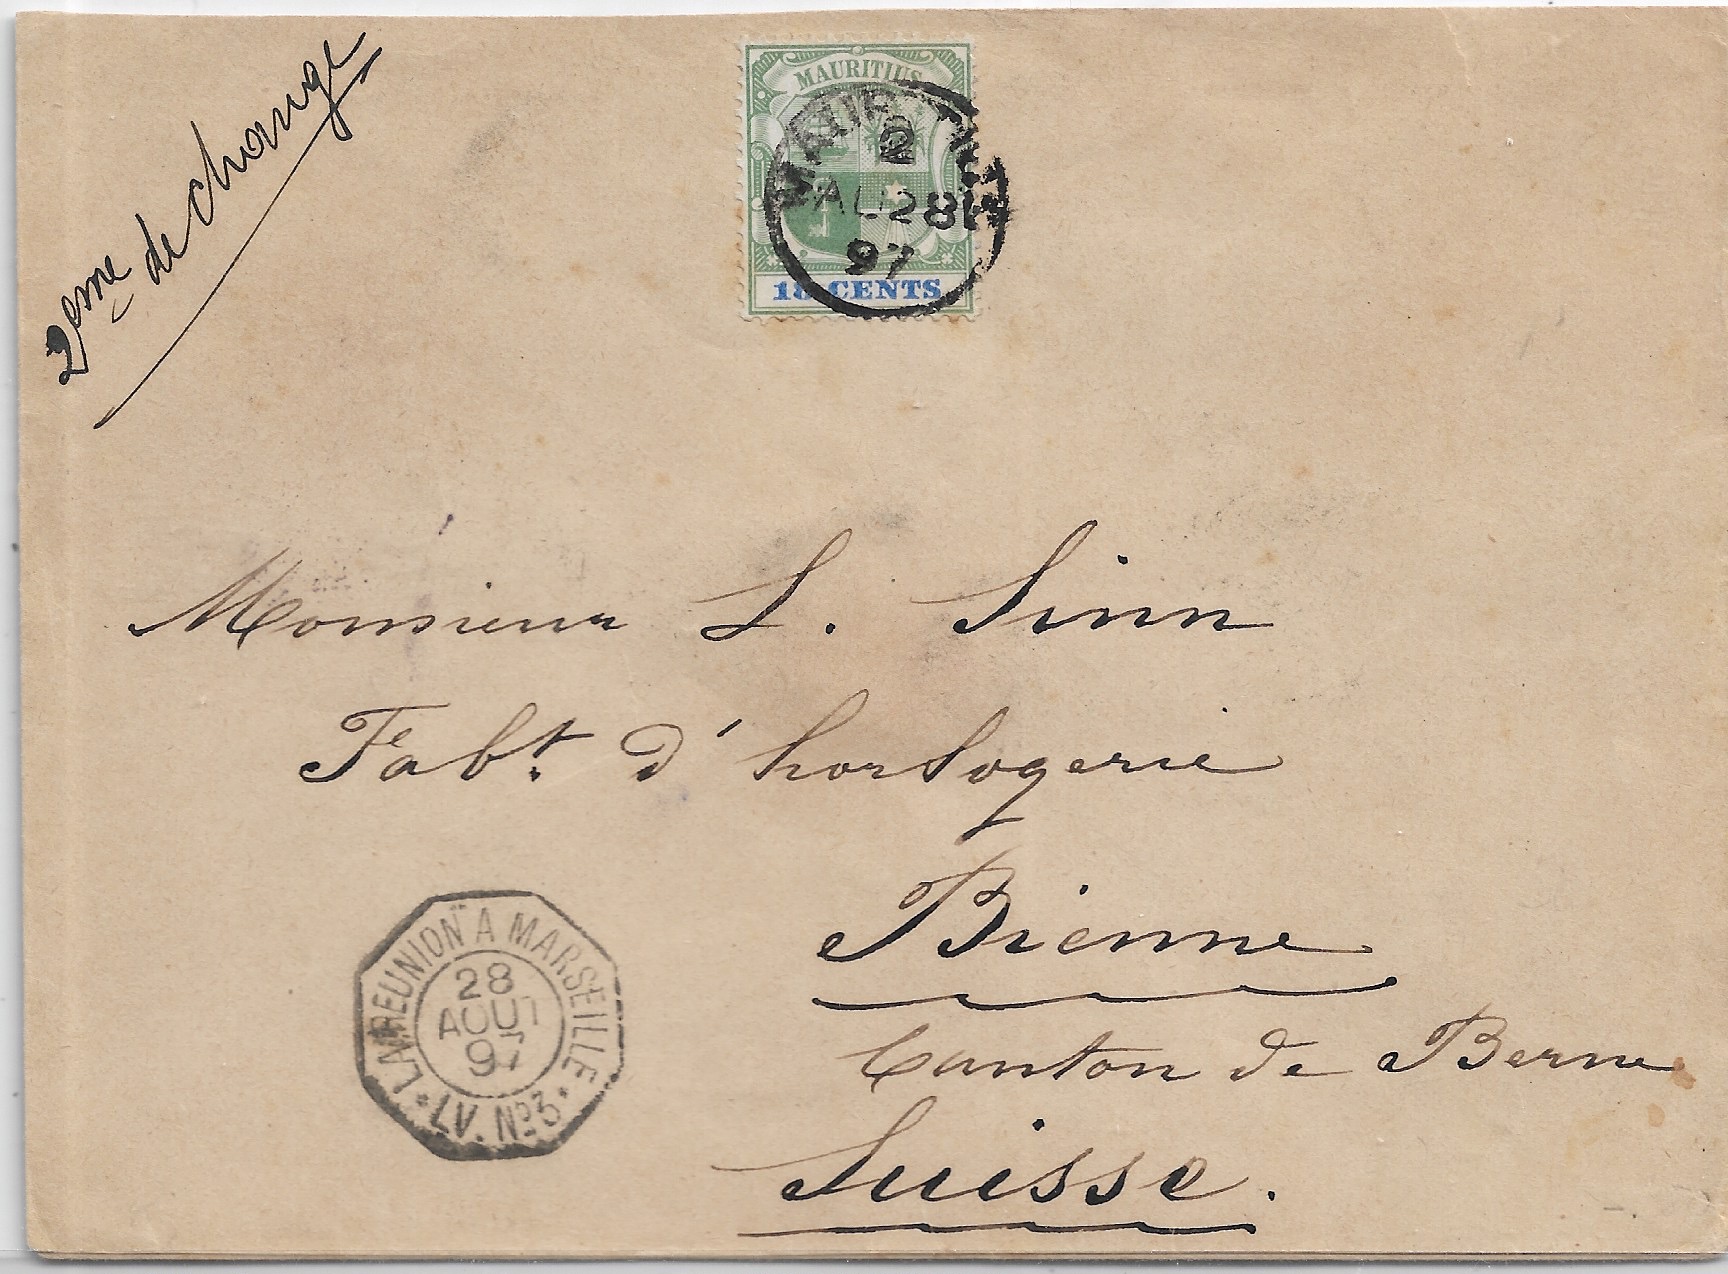 2eme de change
MAURITIUS
MAURITIUS
2
AU 28 97
18 CENTS
Monsieur L. Sinn
Fabt. d'horlogerie
Bienne
Canton de Berne
Suisse.
LA REUNION A MARSEILLE
28
AOUT
97
* LV. No3 *